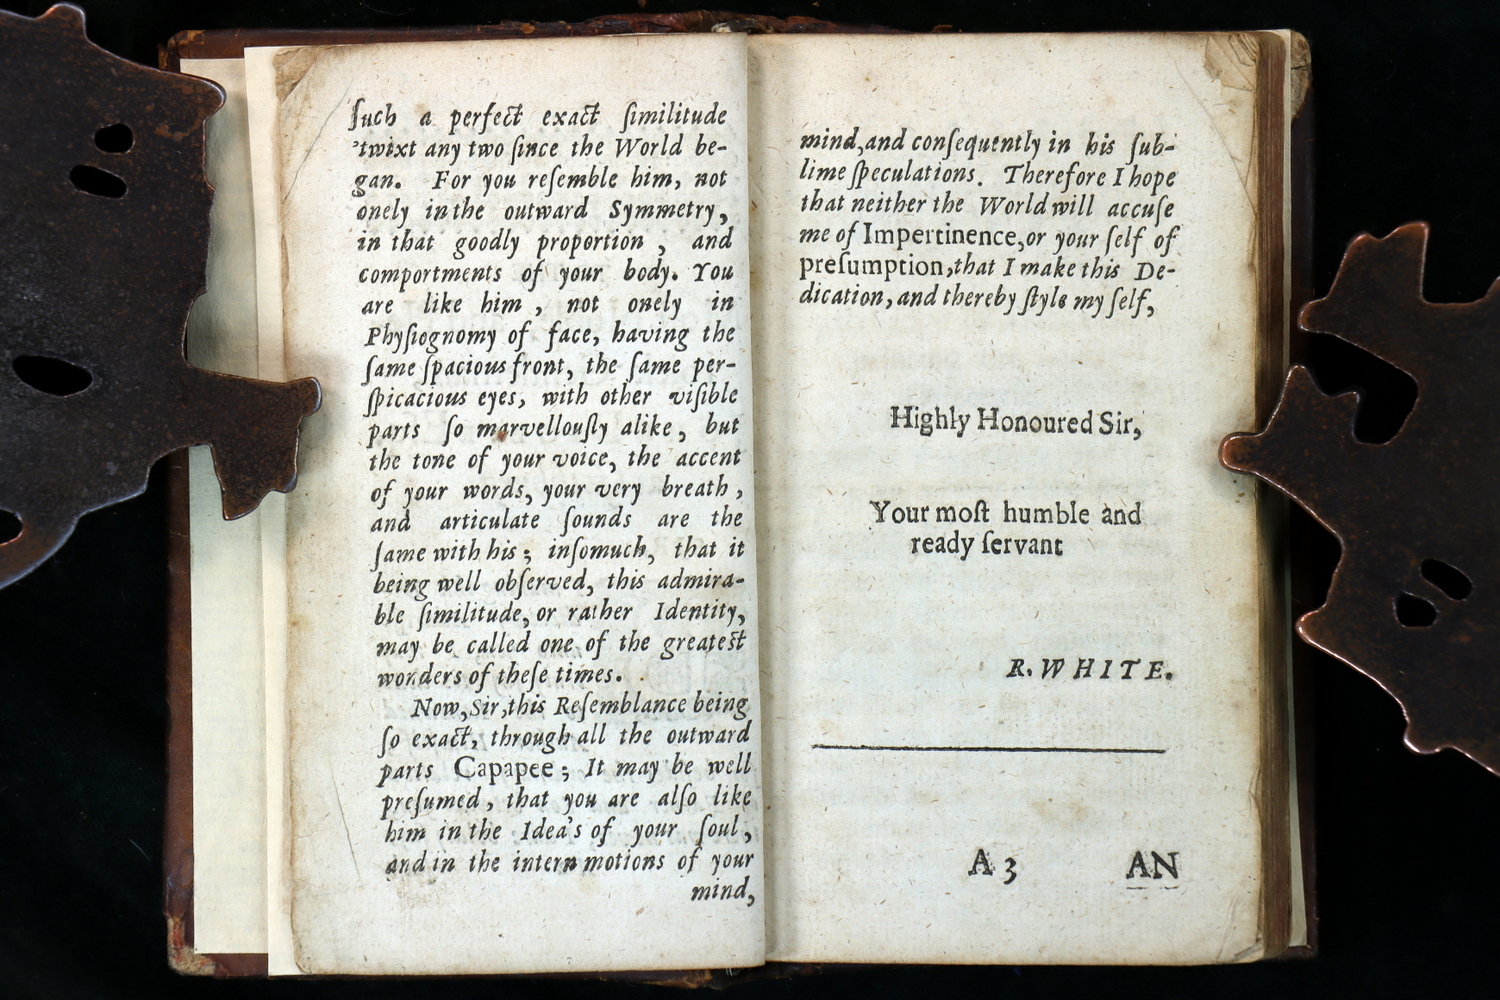 ſuch a perfect exact ſimilitude
'twixt any two ſince the World be-
gan. For you reſemble him, not
onely in the outward Symmetry,
in that goodly proportion, and
comportments of your body. You
are like him, not onely in
Phyſiognomy of face, having the
ſame ſpacious front, the ſame per-
ſpicacious eyes, with other viſible
parts ſo marvellouſly alike, but
the tone of your voice, the accent
of your words, your very breath,
and articulate ſounds are the
ſame with his; inſomuch, that it
being well obſerved, this admira-
ble ſimilitude, or rather Identity,
may be called one of the greatest
wonders of theſe times.
Now, Sir, this Reſemblance being
ſo exact, through all the outward
parts Capapee; It may be well
preſumed, that you are alſo like
him in the Idea's of your ſoul,
and in the intern motions of your
mind,
mind, and conſequently in his ſub-
lime ſpeculations. Therefore I hope
that neither the World will accuſe
me of Impertinence, or your ſelf of
preſumption, that I make this De-
dication, and thereby ſtyle my ſelf,
Highly Honoured Sir,
Your moſt humble and
ready ſervant
R. WHITE.
A 3
AN